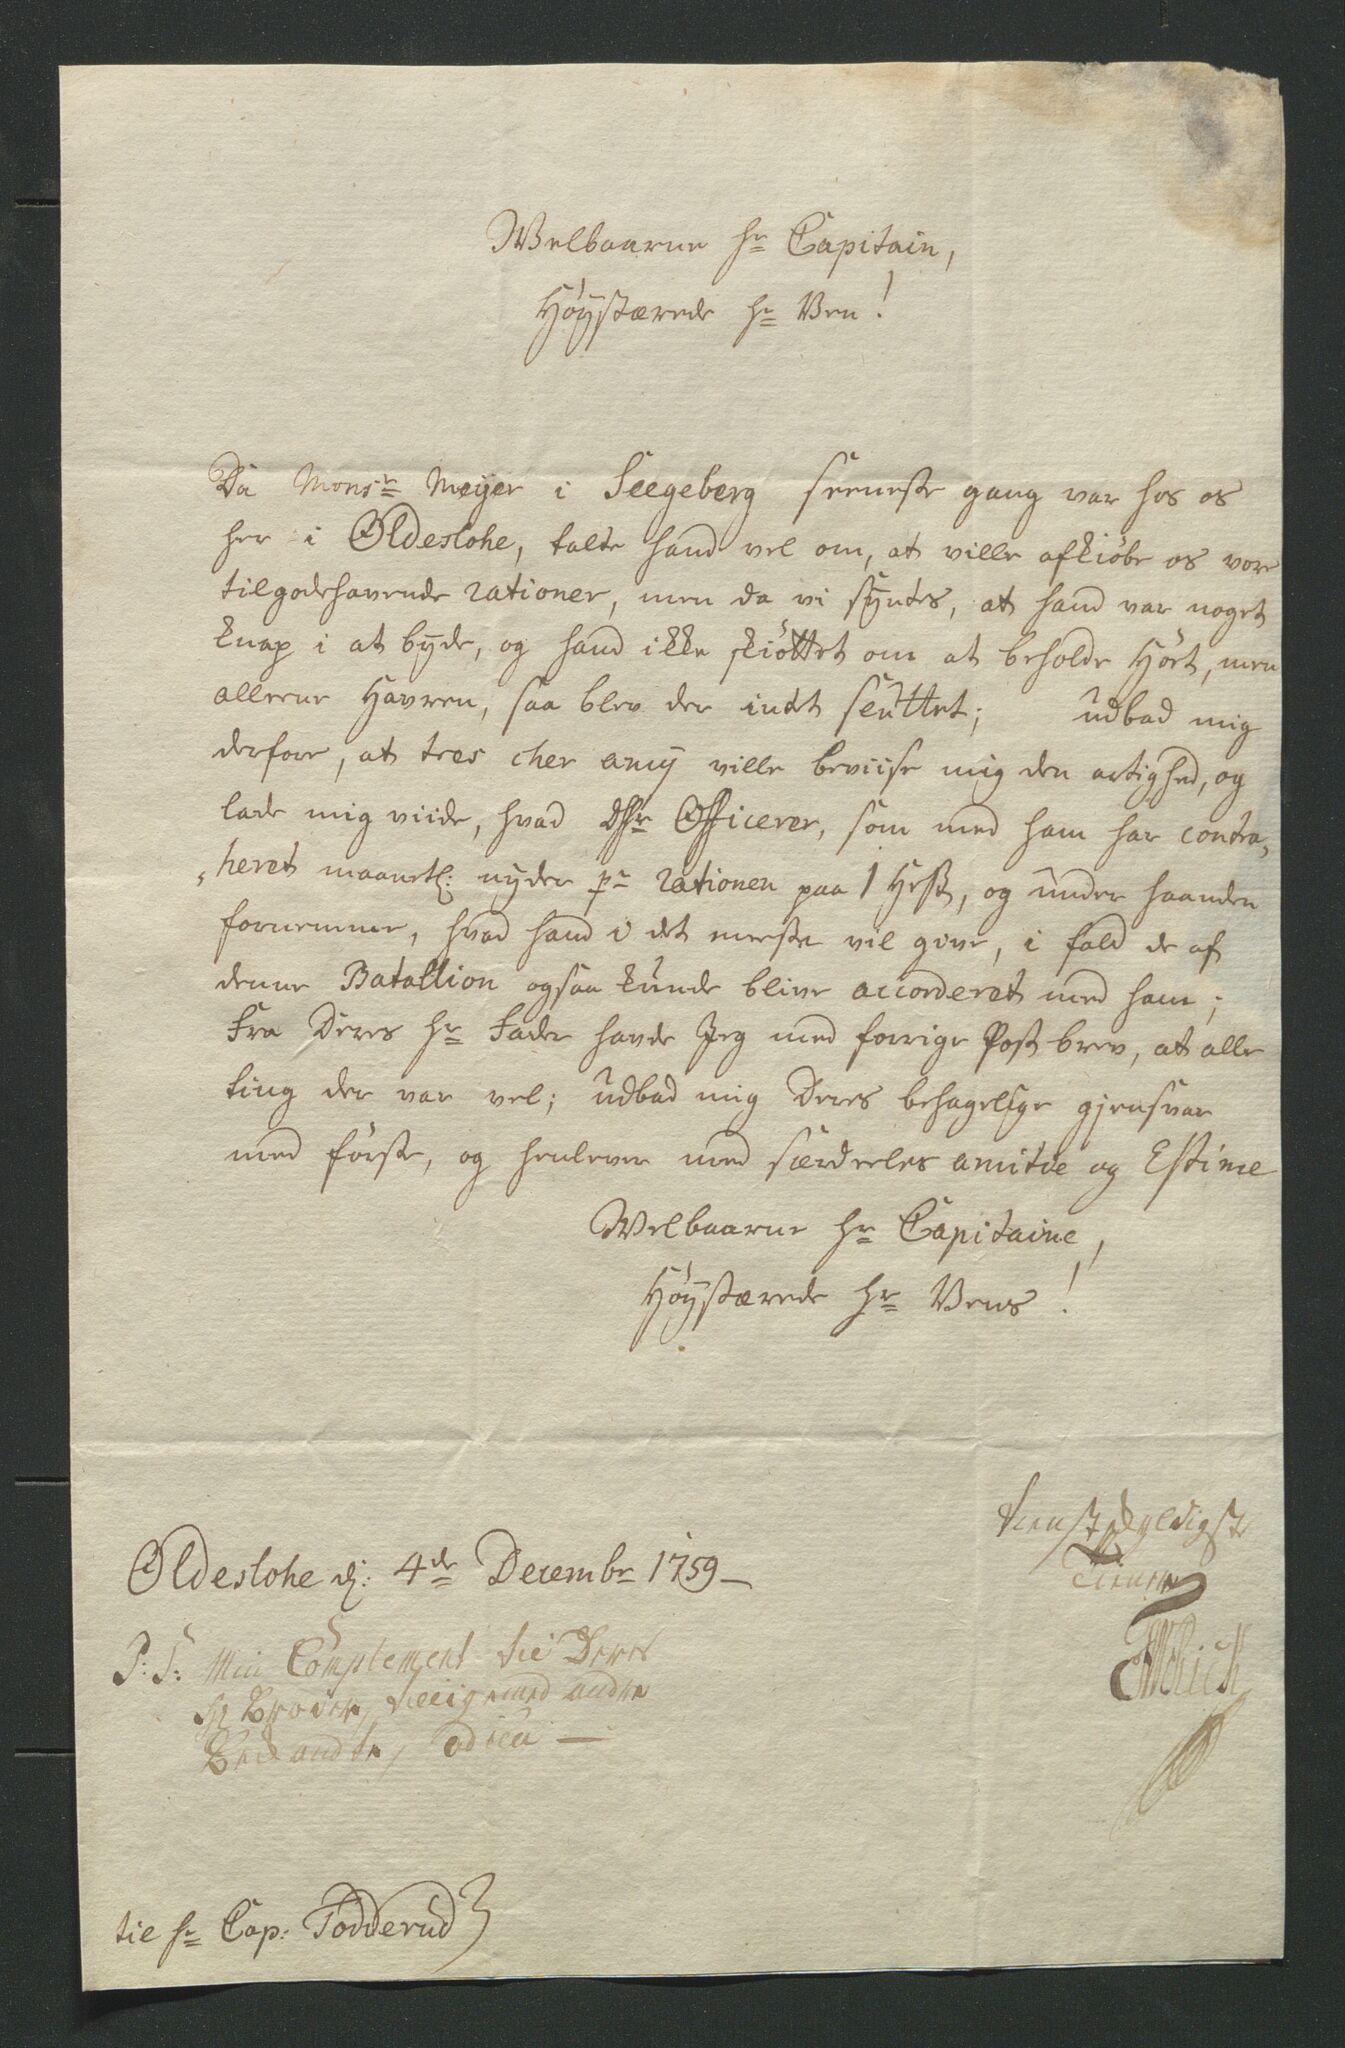 Welbaarne Hr Capitain,
Høÿstærede Hr Ven!
Da Monsr Meÿer i Seegeberg seeneste gang var hos os
her i Oldeslohe, talte hand vel om, at ville afkiöbe os vore
tilgodehavende rationer, men da vi sÿntes, at hand var noget
knap i at bÿde, og hand ikke skiöttet om at beholde Höet, men
alleene Havren, saa blev der intet sluttet; udbad mig
derfore, at tres cher amÿ ville beviise mig den artighed, og
lade mig viide, hvad dhr Officerer, som med ham har contra-
heret maanetl: nÿder pr rationen paa 1 Hest, og under haanden
fornemme, hvad hand i det meeste vil give, i fald de af
denne Batallion ogsaa kunde blive accorderet med ham;
Fra Deres Hr Fader havde Jeg med forrige Post brev, at alle
ting der var vel; udbad mig Deres behagelige gjensvar
med förste, og henlever med særdeeles amitie og Estime
Welbaarne Hr Capitaine,
Høÿstærede Hr Vens!
tienstskyldigste
Tiener
Oldeslohe d: 4de Decembr 1759
P: S: Min Complement til Deres
Hr Broder, tillige med andre
Bekandte, adieu
til Hr Cap: Todderud